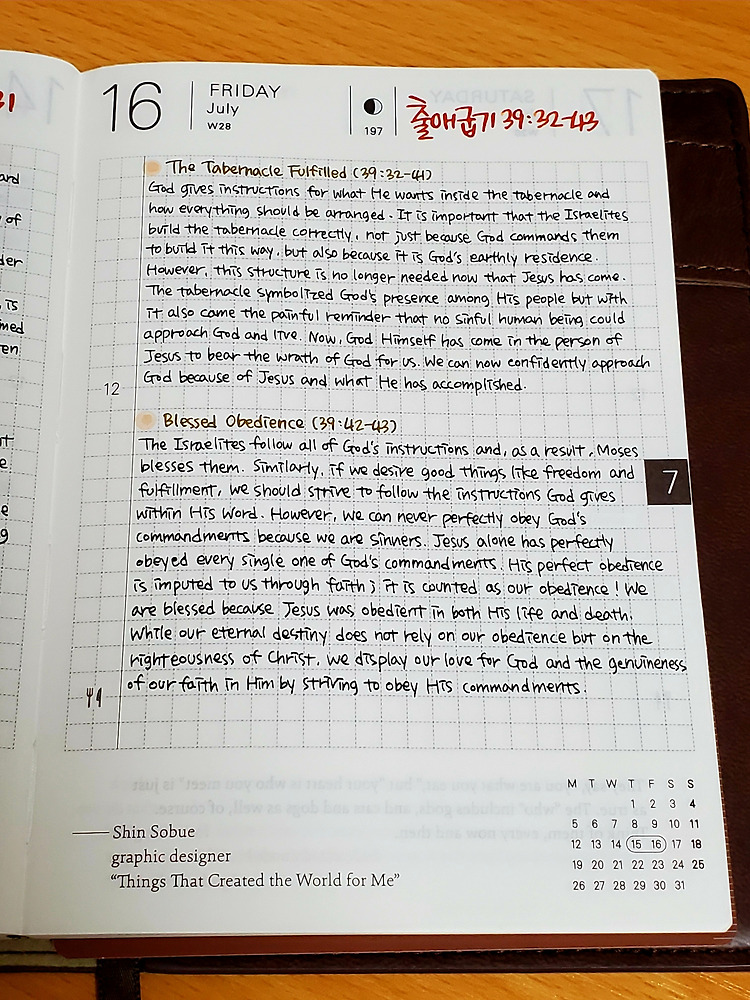 16
FRIDAY
July
W28
197
출애굽기 39:32-43
The Tabernacle Fulfilled (39:32-41)
God gives instructions for what He wants inside the tabernacle and
how everything should be arranged. It is important that the Israelites
build the tabernacle correctly, not just because God commands them
to build it this way, but also because it is God's earthly residence.
However, this structure is no longer needed now that Jesus has come.
The tabernacle symbolized God's presence among His people but with
it also came the painful reminder that no sinful human being could
approach God and live. Now, God Himself has come in the person of
Jesus to bear the wrath of God for us. We can now confidently approach
God because of Jesus and what He has accomplished.
12
Blessed Obedience (39:42-43)
The Israelites follow all of God's instructions and, as a result, Moses
blesses them. Similarly, if we desire good things like freedom and
fulfillment, we should strive to follow the instructions God gives
within His Word. However, we can never perfectly obey God's
commandments because we are sinners. Jesus alone has perfectly
obeyed every single one of God's commandments. His perfect obedience
is imputed to us through faith; it is counted as our obedience! We
are blessed because Jesus was obedient in both His life and death.
While our eternal destiny does not rely on our obedience but on the
righteousness of Christ, we display our love for God and the genuineness
of our faith in Him by striving to obey His commandments.
7
Shin Sobue
graphic designer
"Things That Created the World for Me"
M T W T F S S
1 2 3 4
5 6 7 8 9 10 11
12 13 14 15 16 17 18
19 20 21 22 23 24 25
26 27 28 29 30 31